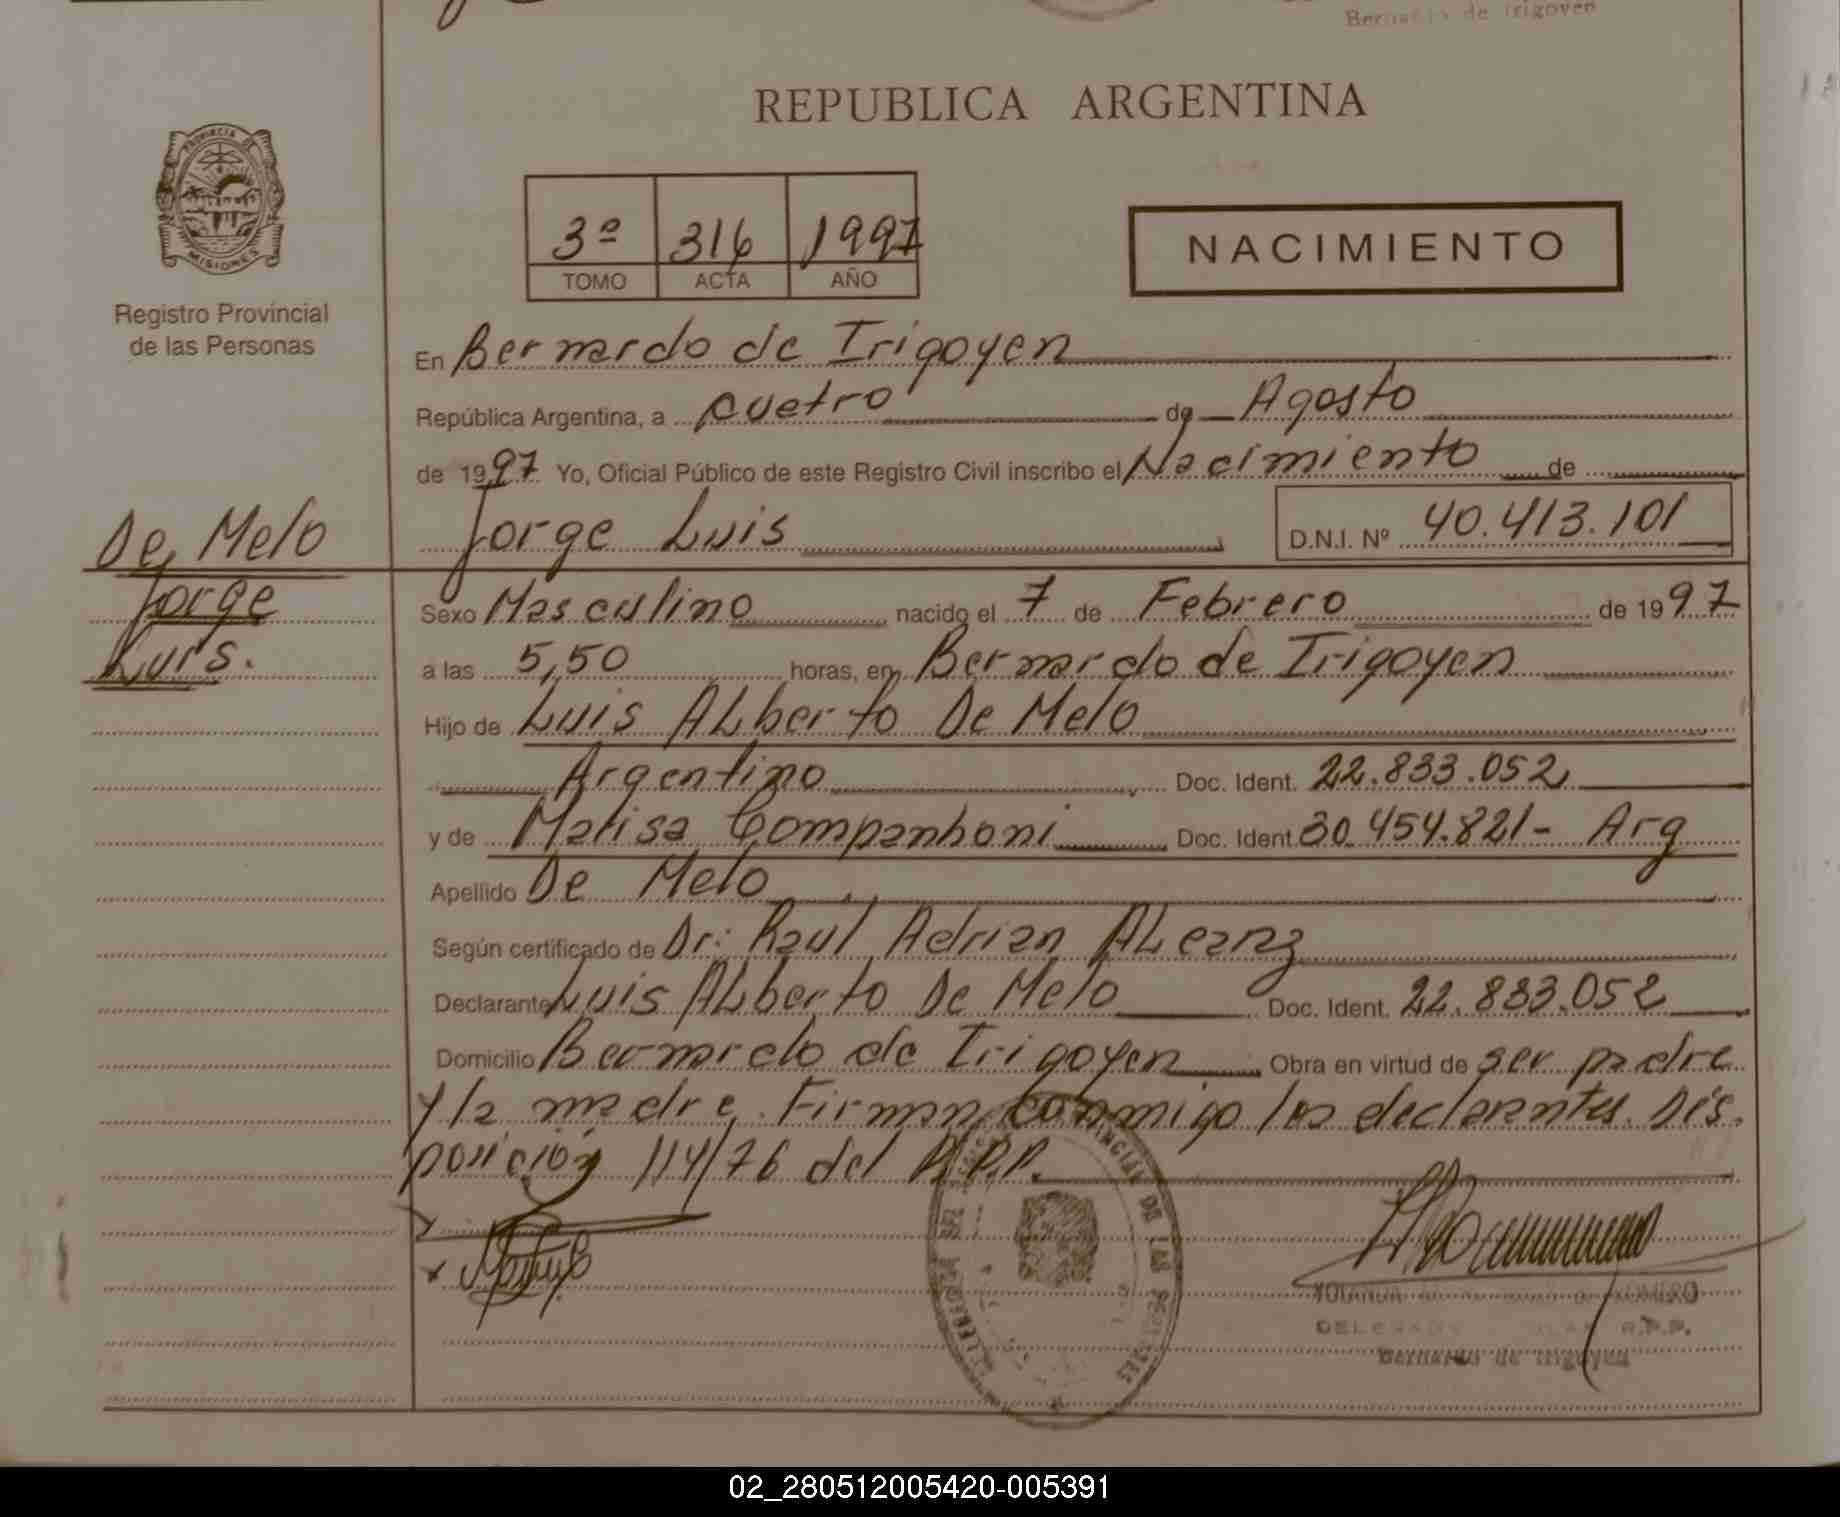 Bernardo de Irigoyen
REPUBLICA ARGENTINA
PROVINCIA DE
MISIONES
Registro Provincial
de las Personas
3ª 316 1997
TOMO ACTA AÑO
NACIMIENTO
En Bernardo de Irigoyen
República Argentina, a cuatro de Agosto
de 1997 Yo, Oficial Público de este Registro Civil inscribo el Nacimiento de
Jorge Luis D.N.I. Nº 40.413.101
De Melo
Jorge
Luis.
Sexo Masculino nacido el 7 de Febrero de 1997
a las 5,50 horas, en Bernardo de Irigoyen
Hijo de Luis ALberto De Melo
Argentino Doc. Ident. 22.833.052
y de Marisa Companhoni Doc. Ident. 30.454.821- Arg
Apellido De Melo
Según certificado de Dr: Raúl Adrian ALcanz
Declarante Luis ALberto De Melo Doc. Ident. 22.833.052
Domicilio Bernardo de Irigoyen Obra en virtud de ser padre
y la madre. Firman conmigo los declarantes. Dis.
posición 114/76 del R.P.P.
ROMERO
R.P.P.
Bernardo de Irigoyen
02_280512005420-005391